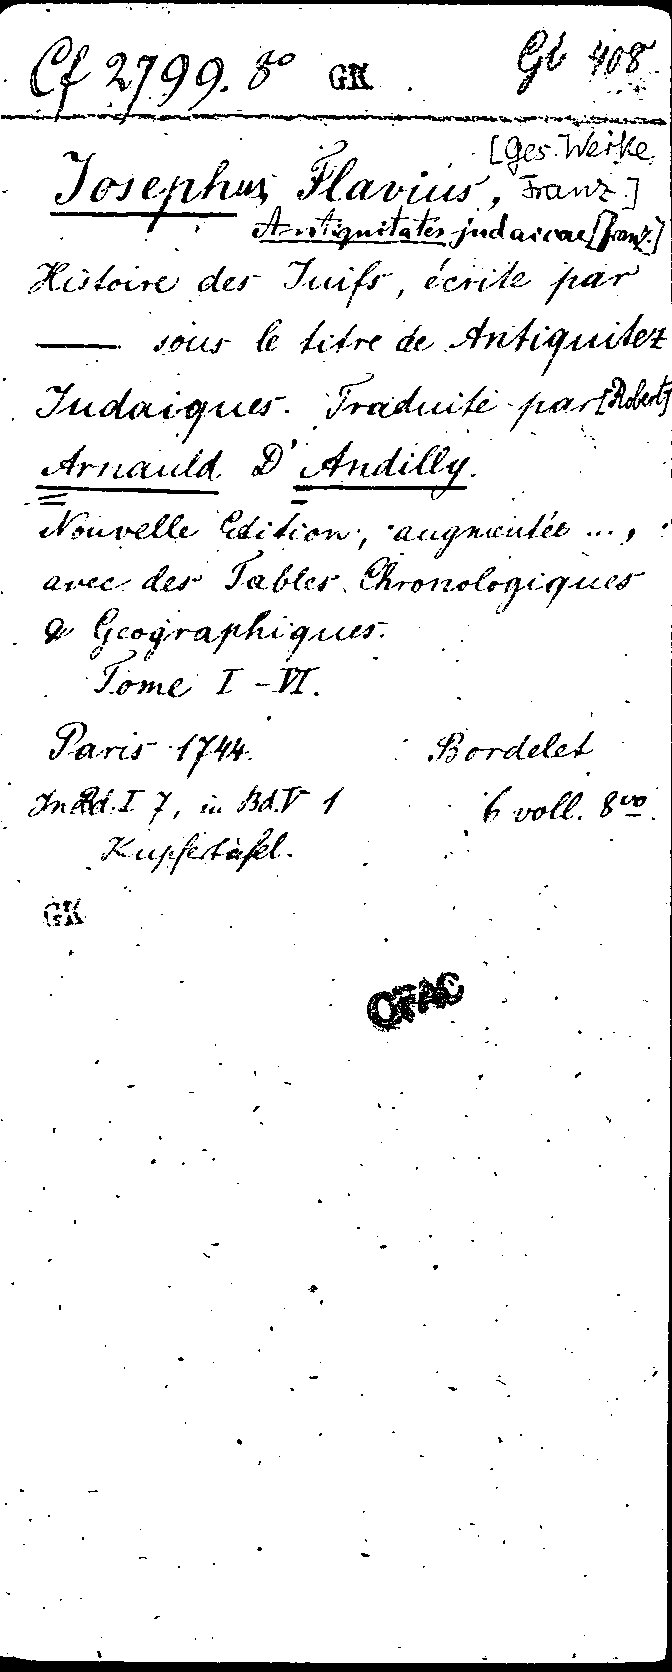 Cf 2799. 8° GK Gb 408
[Ges. Werke,
Josephus, Flavius, Franz.]
Antiquitates judaicae [franz.]
Histoire des Juifs, écrite par
—— sous le titre de Antiquitez
Judaiques. Traduite par [Robert]
Arnauld D'Andilly.
Nouvelle Edition, augmentée ...,
avec des Tables Chronologiques
& Geographiques.
Tome I - VI.
Paris 1744. Bordelet
In Bd. I 7, in Bd. V 1 6 voll. 8vo.
Kupfertafel.
GK
OPAC